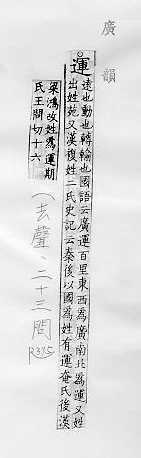 廣韻
運遠也動也轉輸也國語云廣運百里東西爲廣南北爲運又姓
出姓苑又漢複姓二氏史記云秦後以國爲姓有運奄氏後漢
梁鴻改姓爲運期
氏王問切十六
(去聲、二十三問
R375